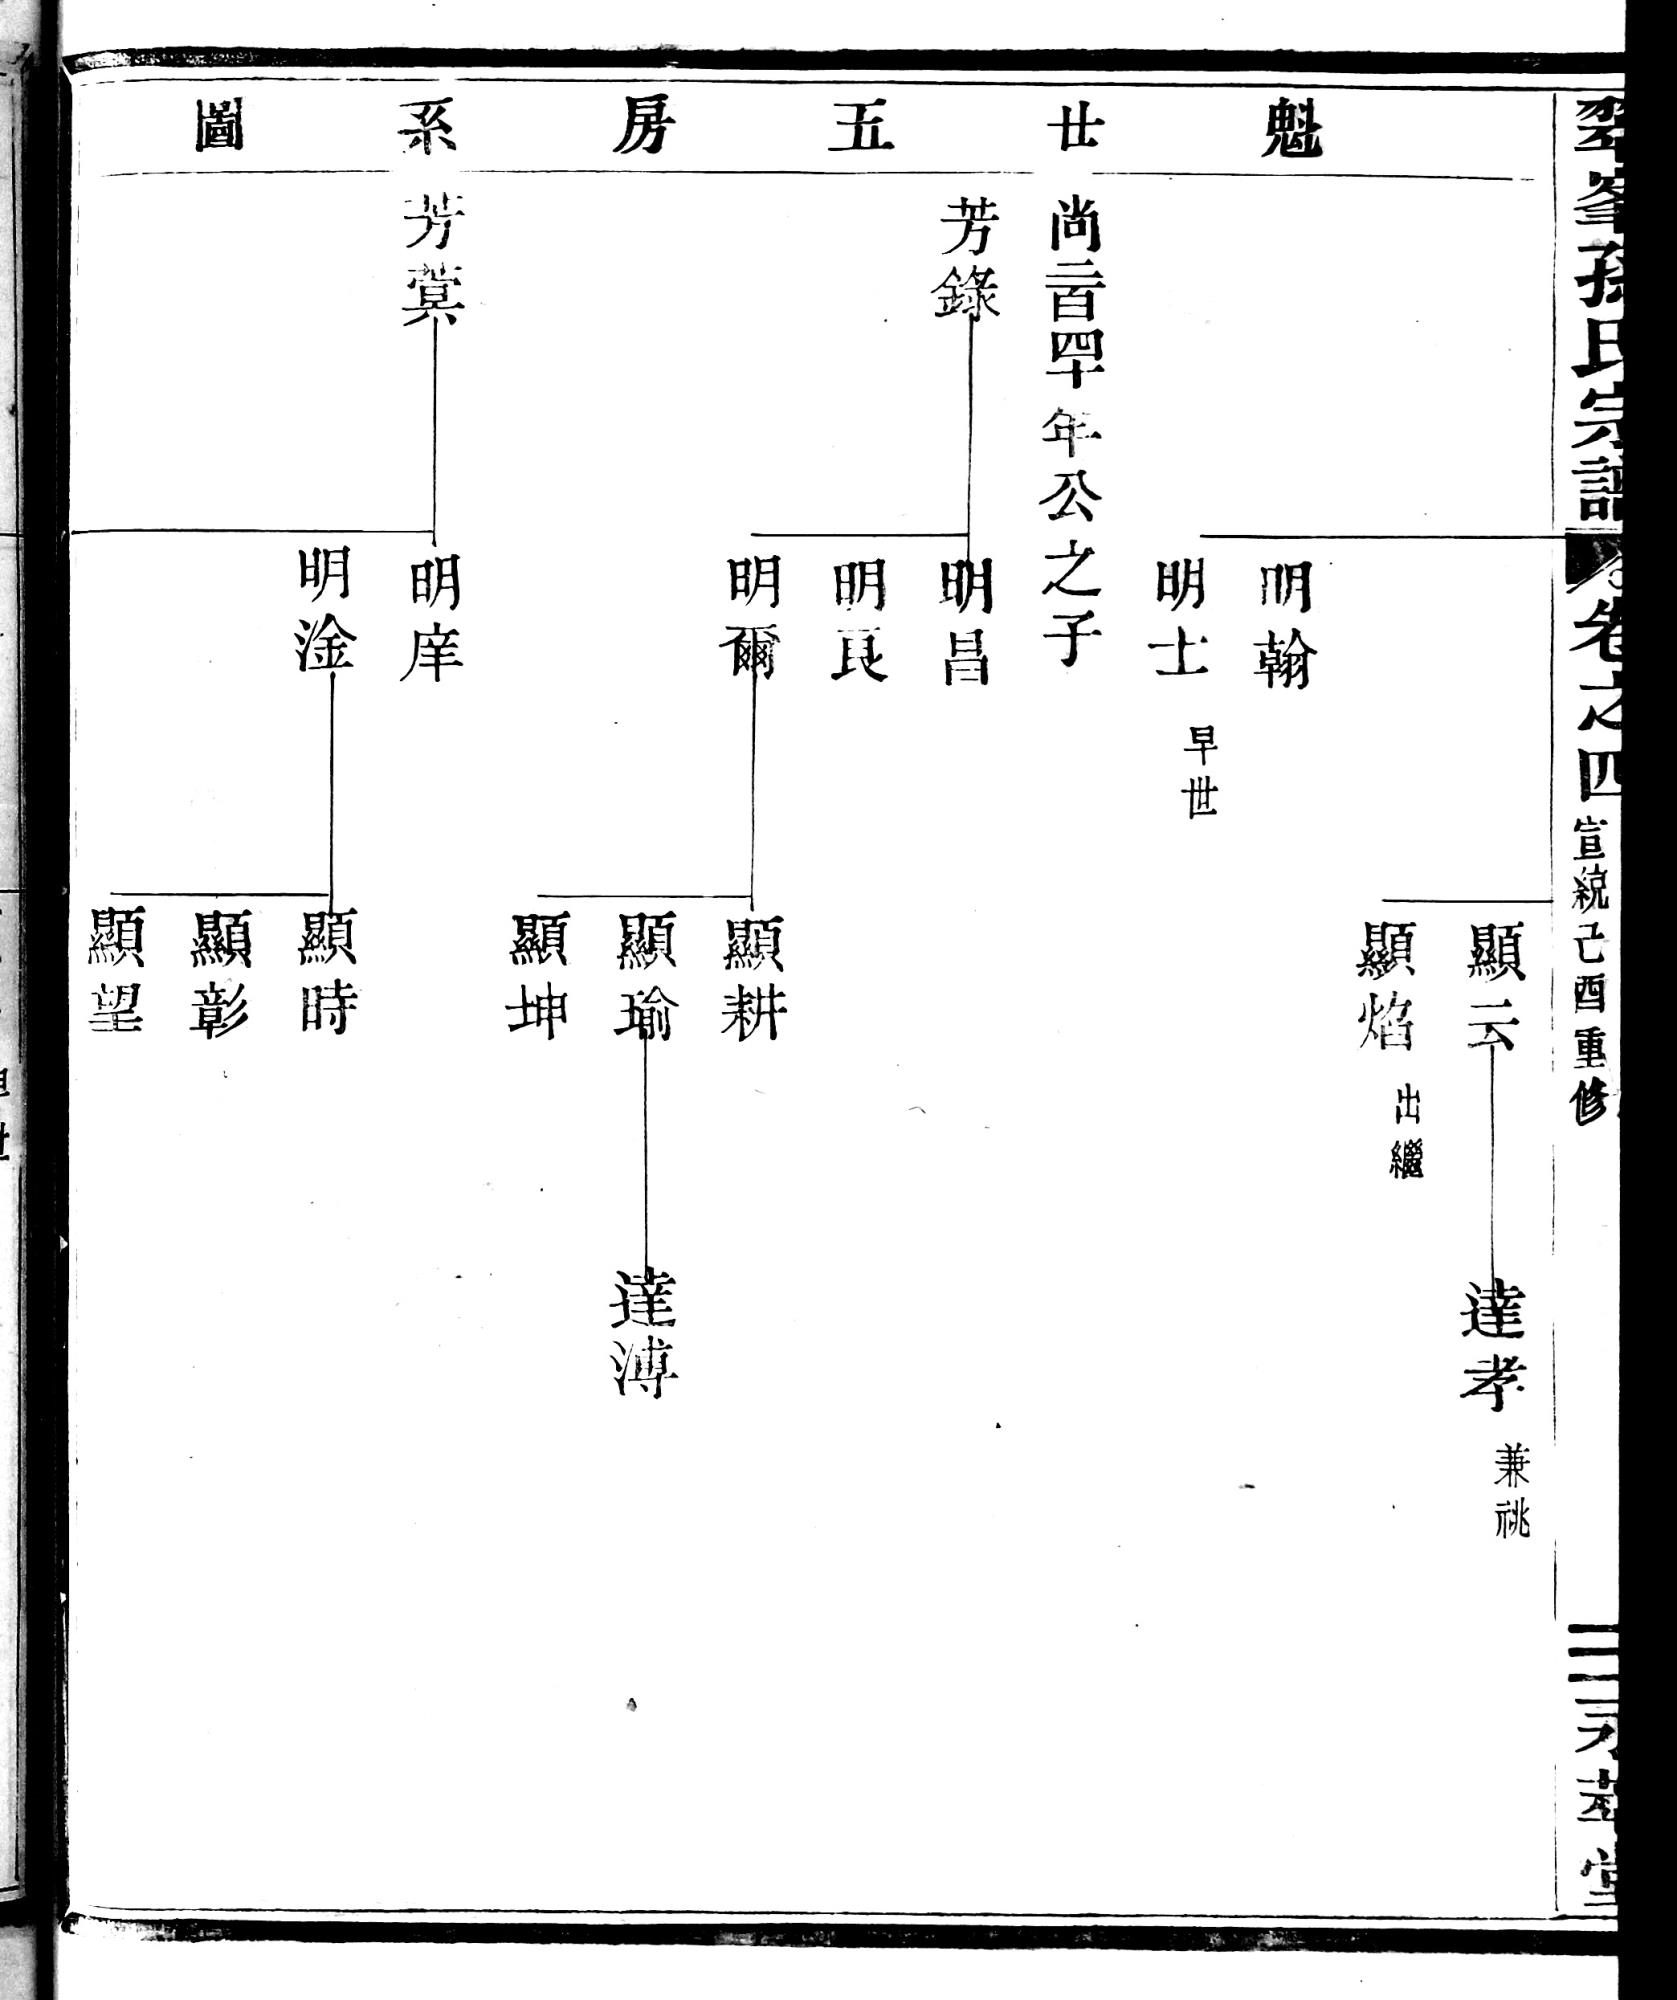 翠峯孫氏宗譜
卷之四
宣統己酉重修
永萃堂
魁廿五房系圖
顯云
達孝
兼祧
顯焰
出繼
明翰
明士
早世
尚二百四十年公之子
芳錄
明昌
明良
明爾
顯耕
顯瑜
達溥
顯坤
芳蓂
明庠
明淦
顯時
顯彰
顯望